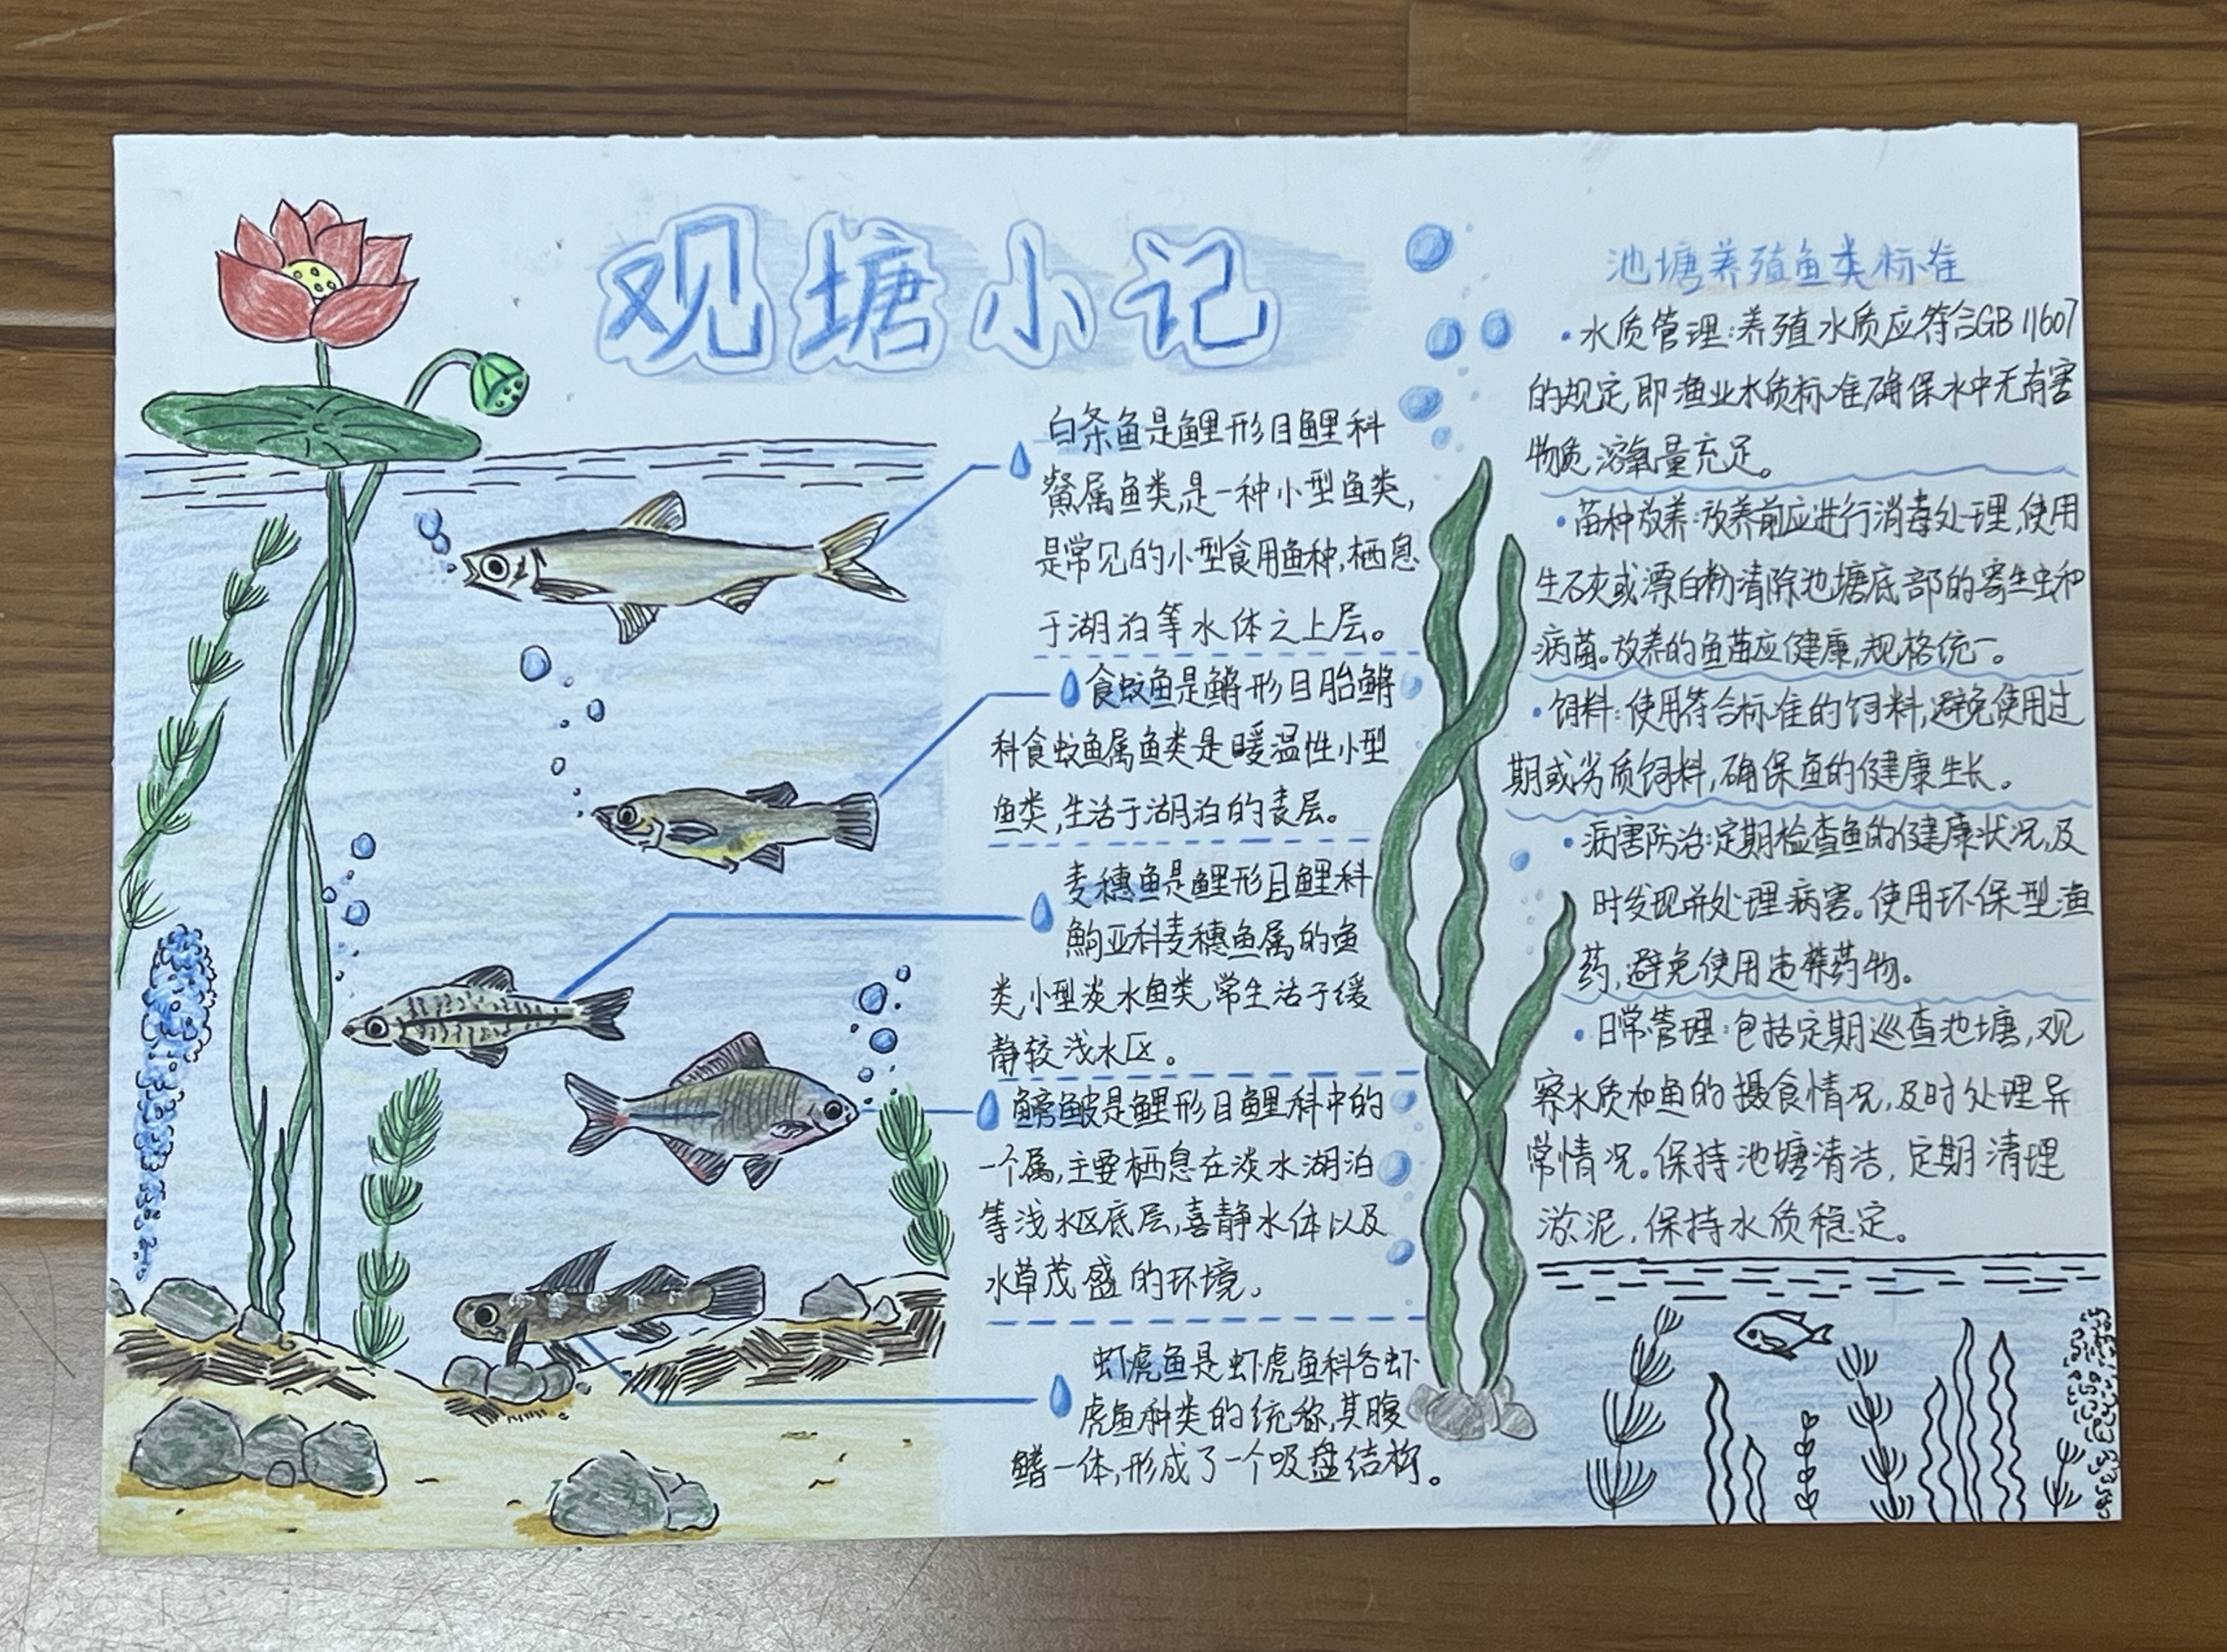 观塘小记
白条鱼是鲤形目鲤科
鱟属鱼类,是一种小型鱼类,
是常见的小型食用鱼种,栖息
于湖泊等水体之上层。
食蚊鱼是鳉形目胎鳉
科食蚊鱼属鱼类是暖温性小型
鱼类,生活于湖泊的表层。
麦穗鱼是鲤形目鲤科
鮈亚科麦穗鱼属的鱼
类,小型淡水鱼类,常生活于缓
静较浅水区。
鳑鲏是鲤形目鲤科中的
一个属,主要栖息在淡水湖泊
等浅水区底层,喜静水体以及
水草茂盛的环境。
虾虎鱼是虾虎鱼科各虾
虎鱼种类的统称,其腹
鳍一体,形成了一个吸盘结构。
池塘养殖鱼类标准
·水质管理:养殖水质应符合GB 11607
的规定,即渔业水质标准,确保水中无有害
物质,溶氧量充足。
·苗种放养:放养前应进行消毒处理,使用
生石灰或漂白粉清除池塘底部的寄生虫和
病菌。放养的鱼苗应健康,规格统一。
·饲料:使用符合标准的饲料,避免使用过
期或劣质饲料,确保鱼的健康生长。
·病害防治:定期检查鱼的健康状况,及
时发现并处理病害。使用环保型渔
药,避免使用违禁药物。
·日常管理:包括定期巡查池塘,观
察水质和鱼的摄食情况,及时处理异
常情况。保持池塘清洁,定期清理
淤泥,保持水质稳定。